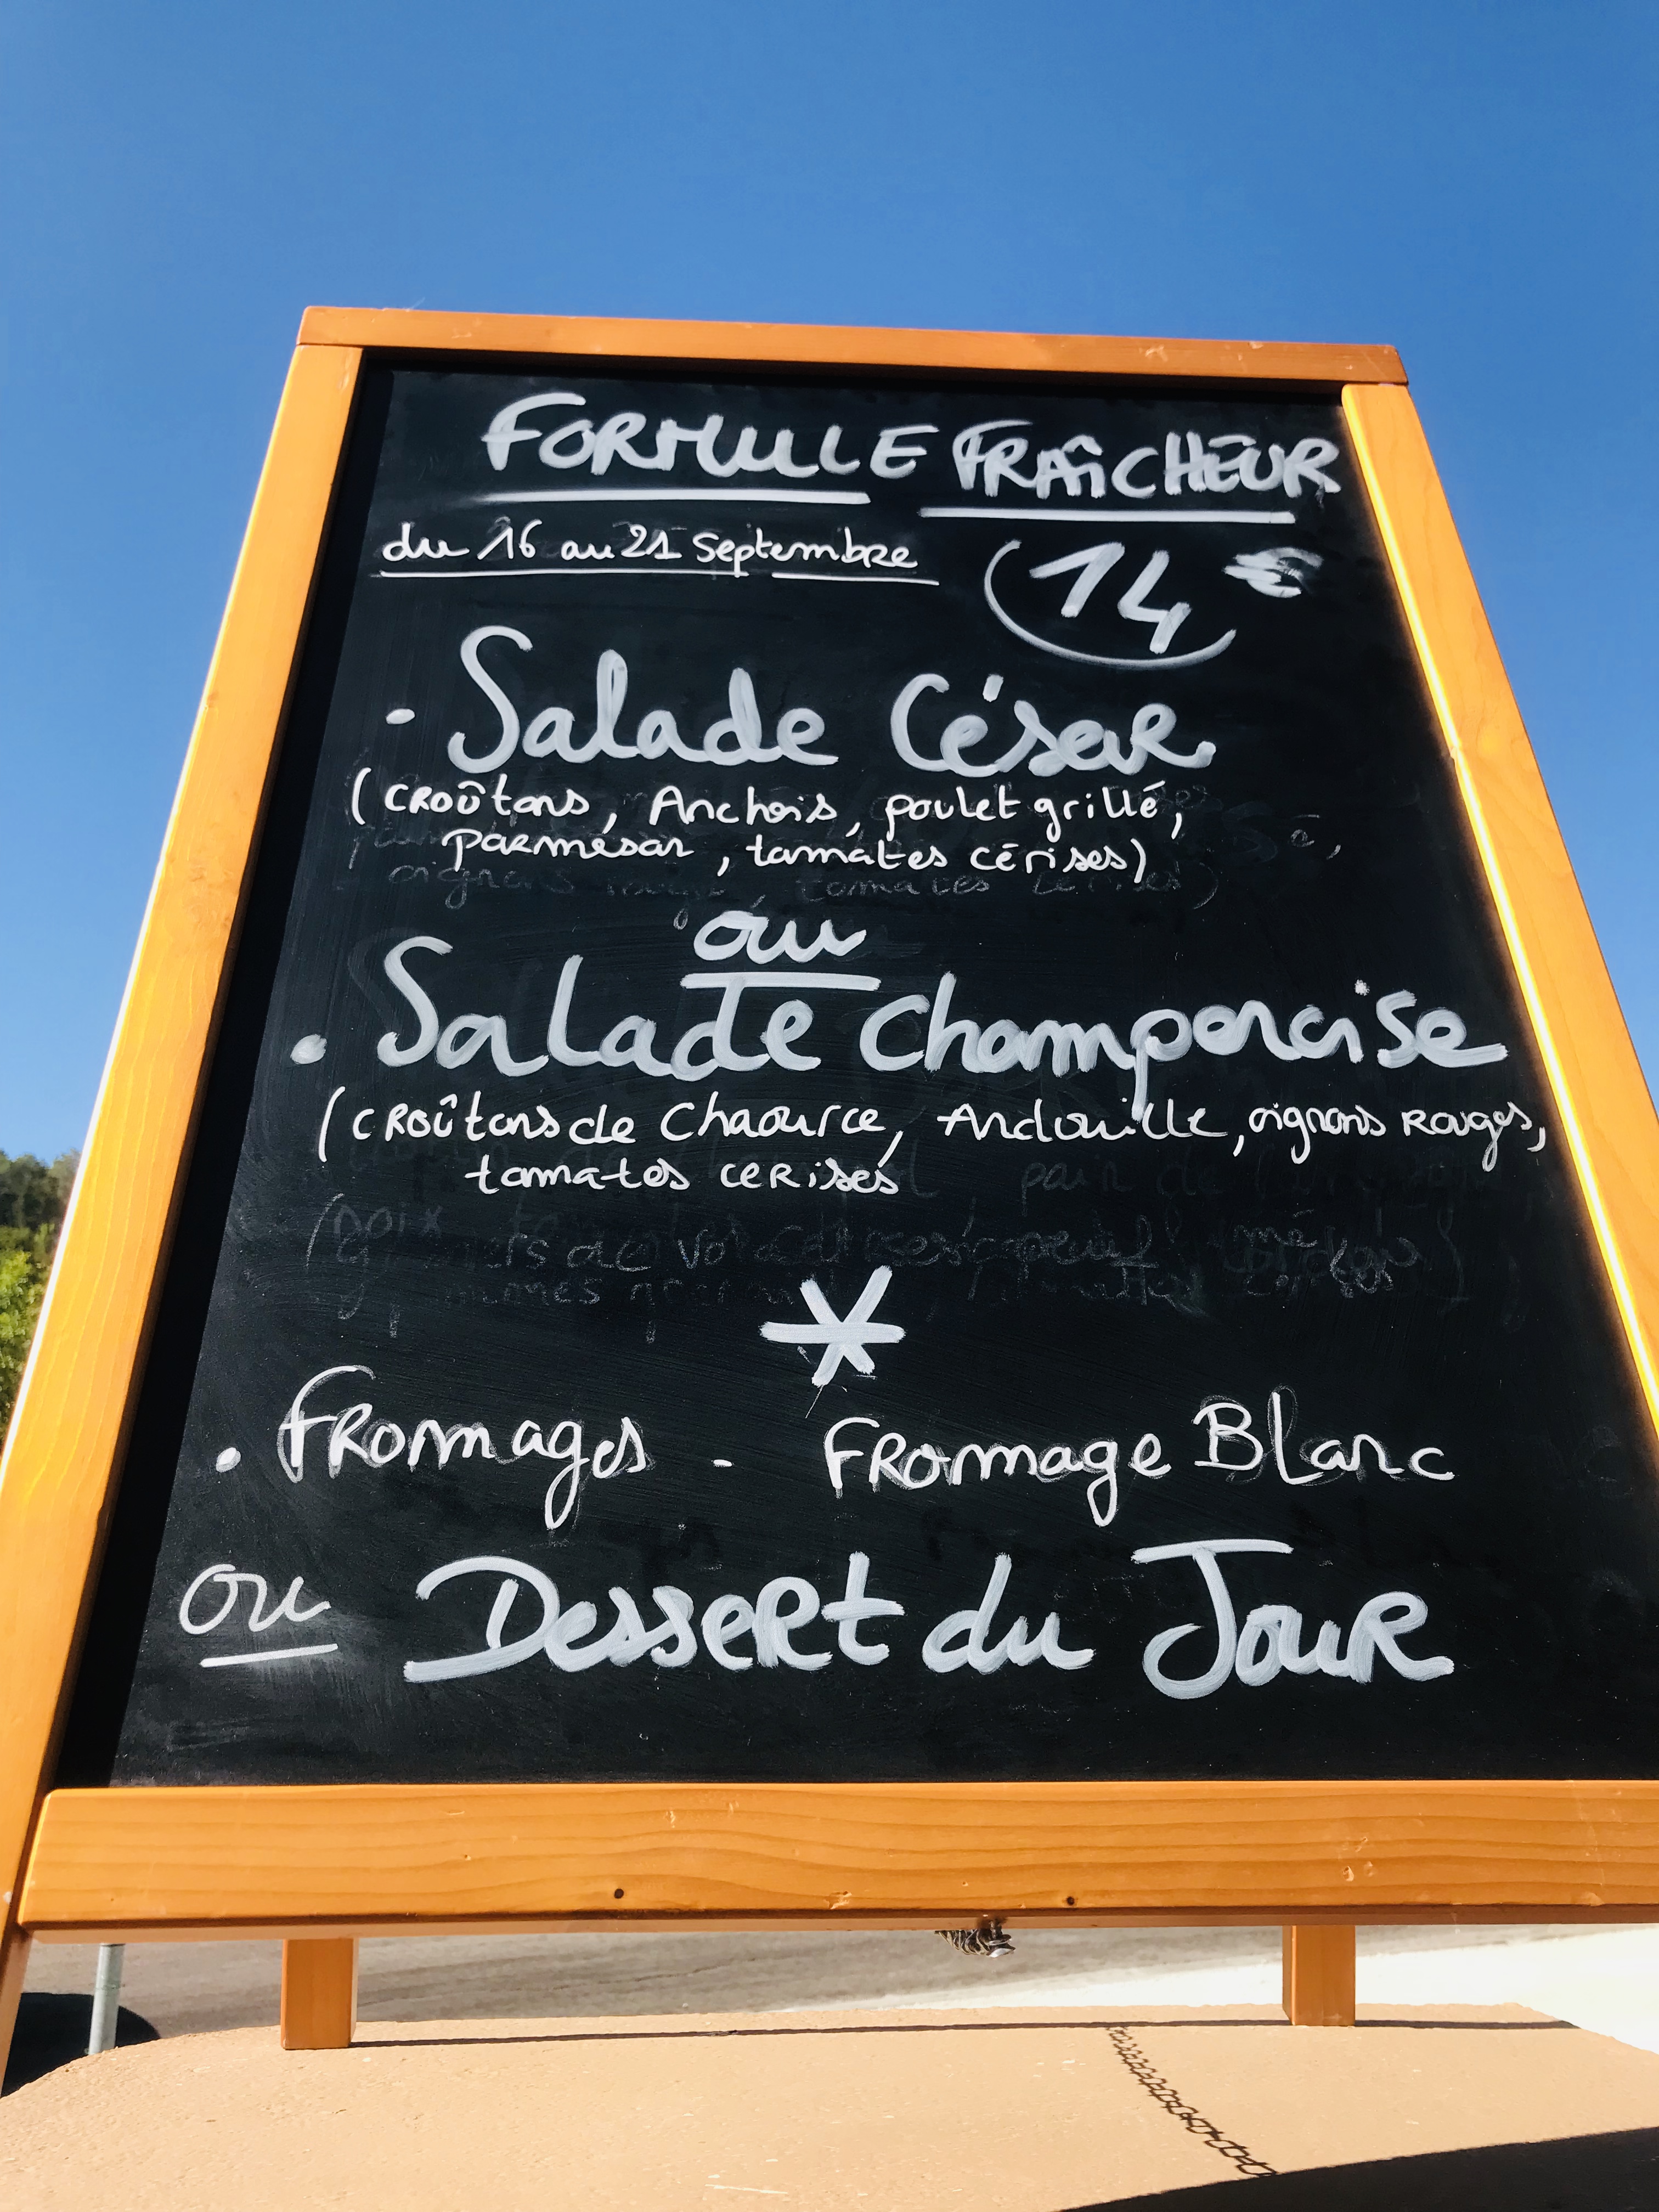 FORMULE FRAÎCHEUR
du 16 au 21 Septembre 14 €
· Salade César
(CROÛtons, Anchois, poulet grillé,
parmesan, tomates cérises)
ou
· Salade Champenoise
(CROÛtons de Chaource, Andouille, oignons Rouges,
tomates CERises
*
· FROmages · FROmage Blanc
ou Dessert du Jour